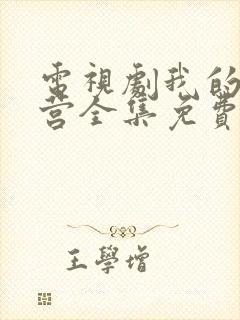 電視劇我的
营全集免費
王學增